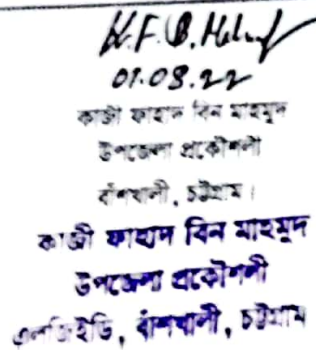 01.08.22
কাজী ফাহাদ বিন মাহমুদ
উপজেলা প্রকৌশলী
বাঁশখালী, চট্টগ্রাম।
কাজী ফাহাদ বিন মাহমুদ
উপজেলা প্রকৌশলী
এলজিইডি, বাঁশখালী, চট্টগ্রাম